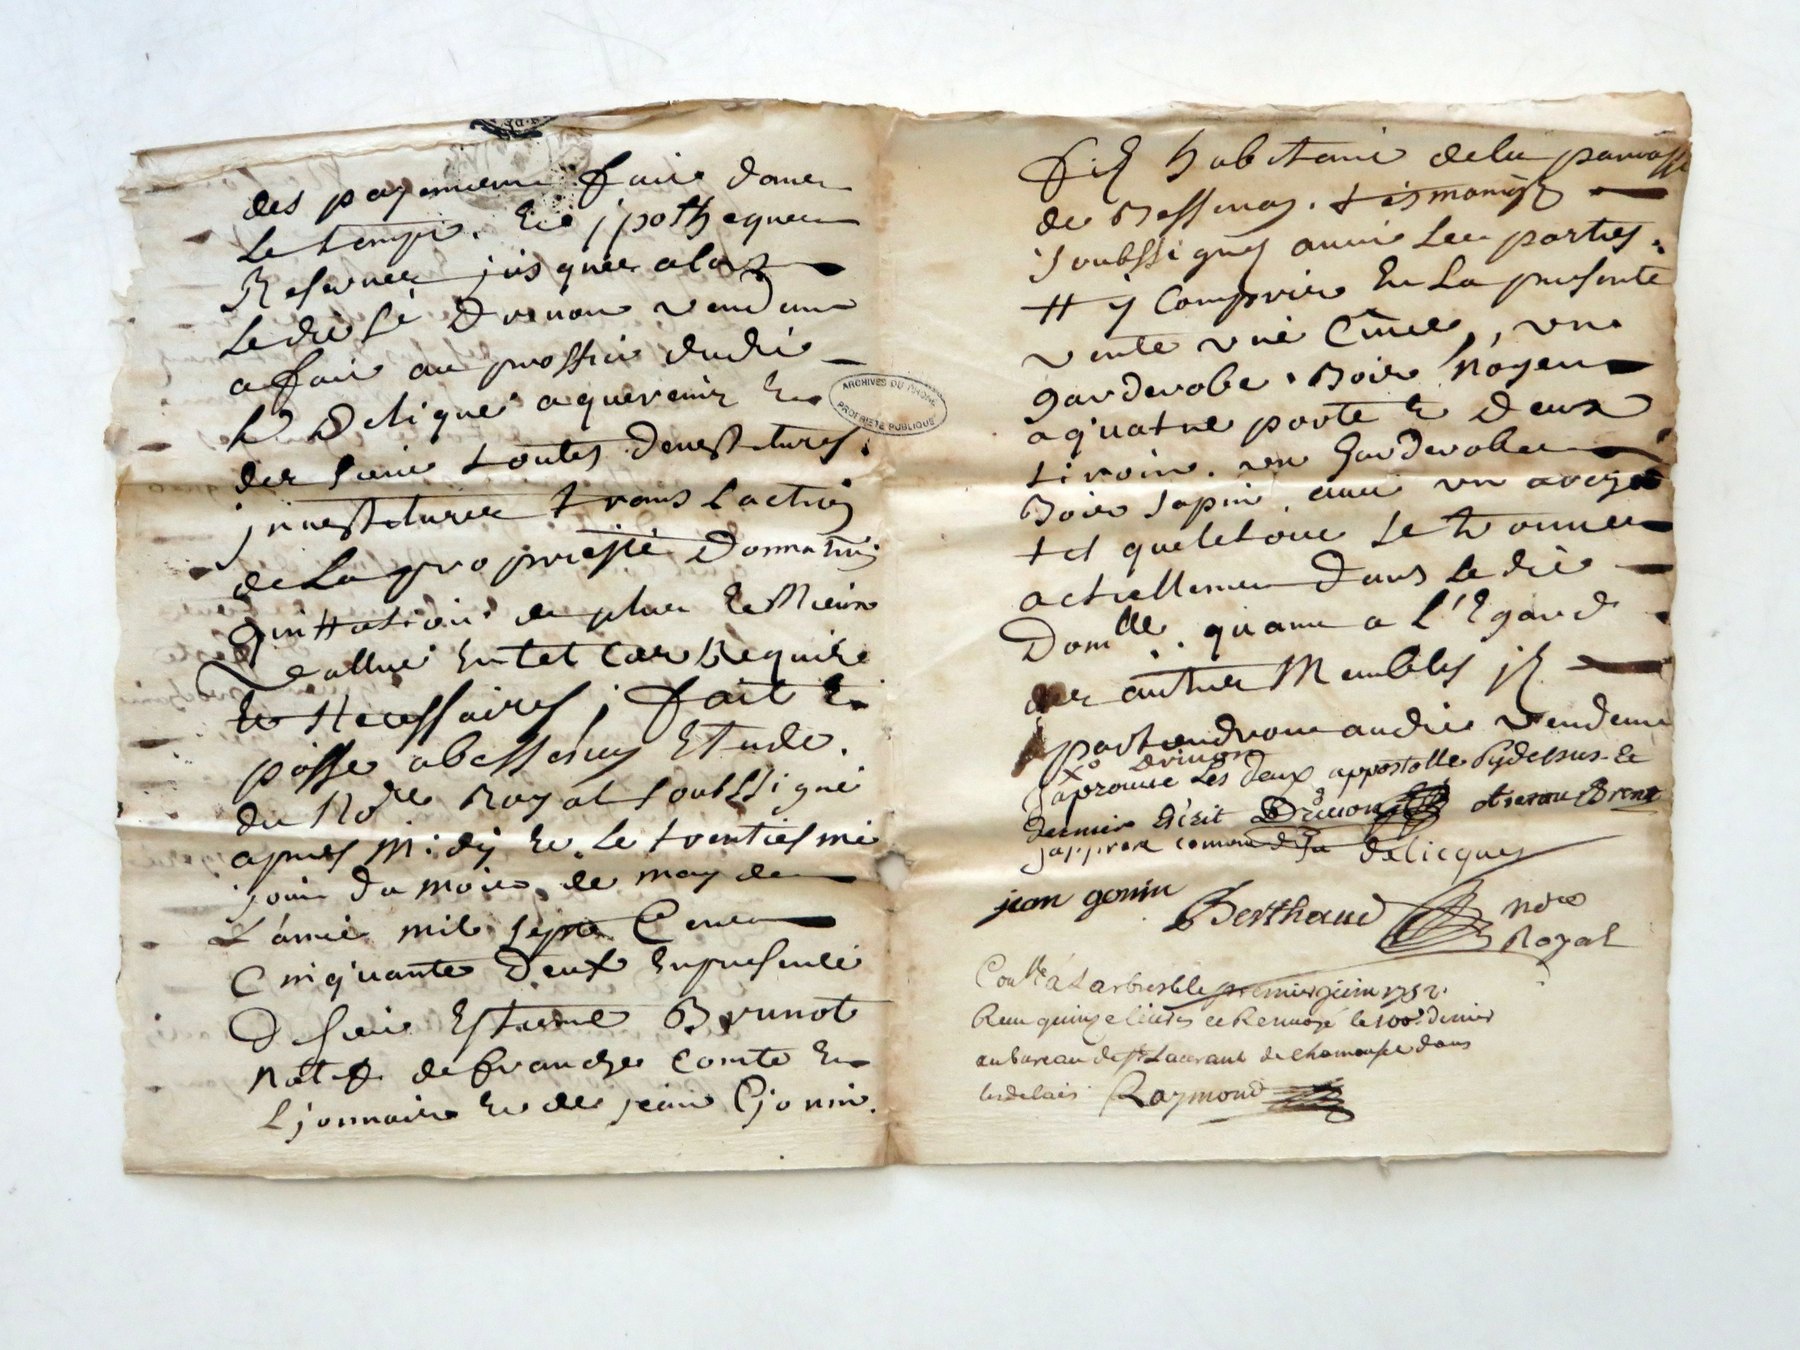 des payemens faire dans
le temps. Et jpothequer
Reserver jusques alors
Ledit Sr Drivon vendeur
a faire au proffit dudit
Sr Delique aquereur Et
des siens toutes devestitures
jnvestitures translaction
de La proprieté Donnation
quittation de plus
Et Necessaires, fait Et
passé a bessenay Etude
du No.re Royal soubssigné
apres Midy Et Le trentiesme
jour du mois de may de
L'année mil sept Cent
Cinquante Deux En presence
De Sieur Estienne Brunot
de franche comte
Lyonnaire Et de jean Gonin
habitant de la paroisse
de Bessenay. tesmoings
soubssignes avec Les parties.
# y Compris En La presente
vente une Cuve, une
garderobe Bois Noyer
a quatre porte Et Deux
tiroirs. un Garderobe
Bois sapin avec un
tel quel et ou se trouver
actuellement Dans Ledit
Dom.lle. quant a l'Egard
des autres Meubles jls
apartiendront audit vendeur
Drivon
japrouve les deux appostolle Cydessus Et
dernier Ecrit Drivon
japprouve comme de
delicques
jean gonin
Berthaud
no.re
Royal
Con.lle à Larbresle le premier juin 1752.
Receu quinze livres et Renvoyé le 100.e denier
au bureau de St Laurant de chamousset dans
les delais Raymond
ARCHIVES DU RHONE
PROPRIETE PUBLIQUE